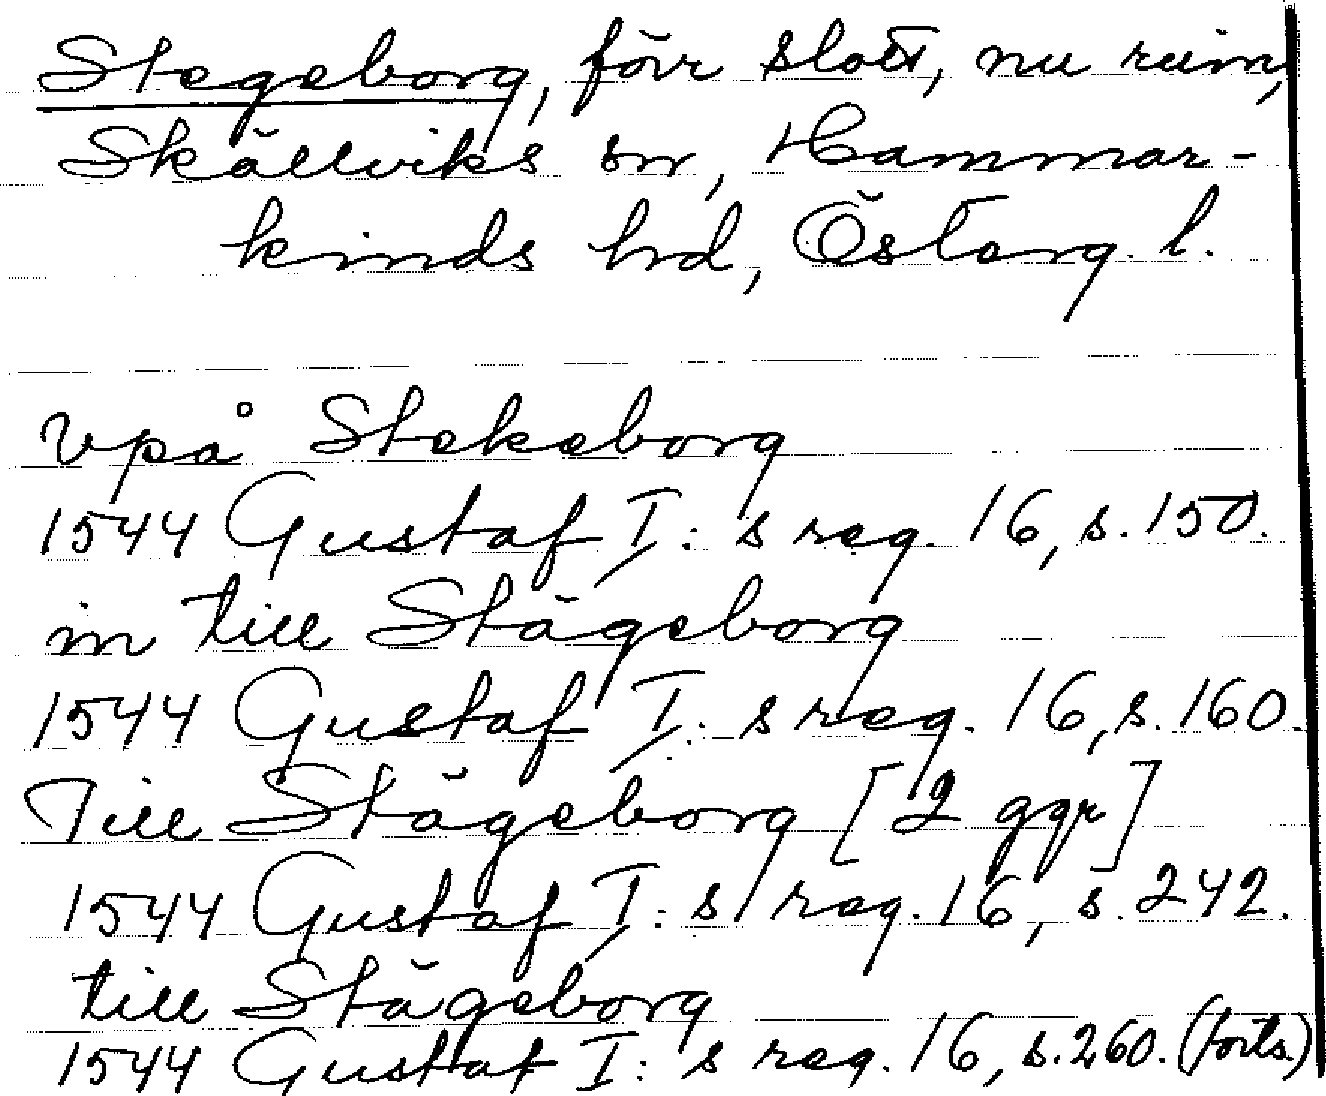 Stegeborg, förr slott, nu ruin,
Skällviks sn, Hammar-
kinds hd, Österg. l.
vpå Stekeborg
1544 Gustaf I: s reg. 16, s. 150.
in till Stägeborg
1544 Gustaf I: s reg. 16, s. 160.
Till Stägeborg [2 ggr]
1544 Gustaf I: s reg. 16, s. 242.
till Stägeborg
1544 Gustaf I: s reg. 16, s. 260. (forts.)